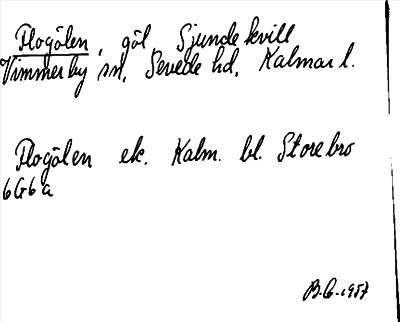 Flogölen, göl, Sjundekvill
Vimmerby sn, Sevede hd, Kalmar l.
Flogölen ek. Kalm. bl. Storebro
6G6a
B.G. 1957